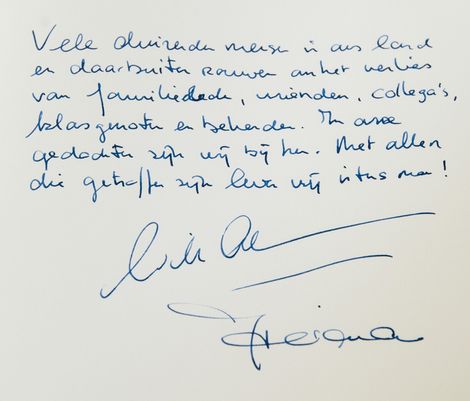 Vele duizenden mensen in ons land
en daarbuiten rouwen om het verlies
van familieleden, vrienden, collega's,
klasgenoten en bekenden. In onze
gedachten zijn wij bij hen. Met allen
die getroffen zijn leven wij intens mee!